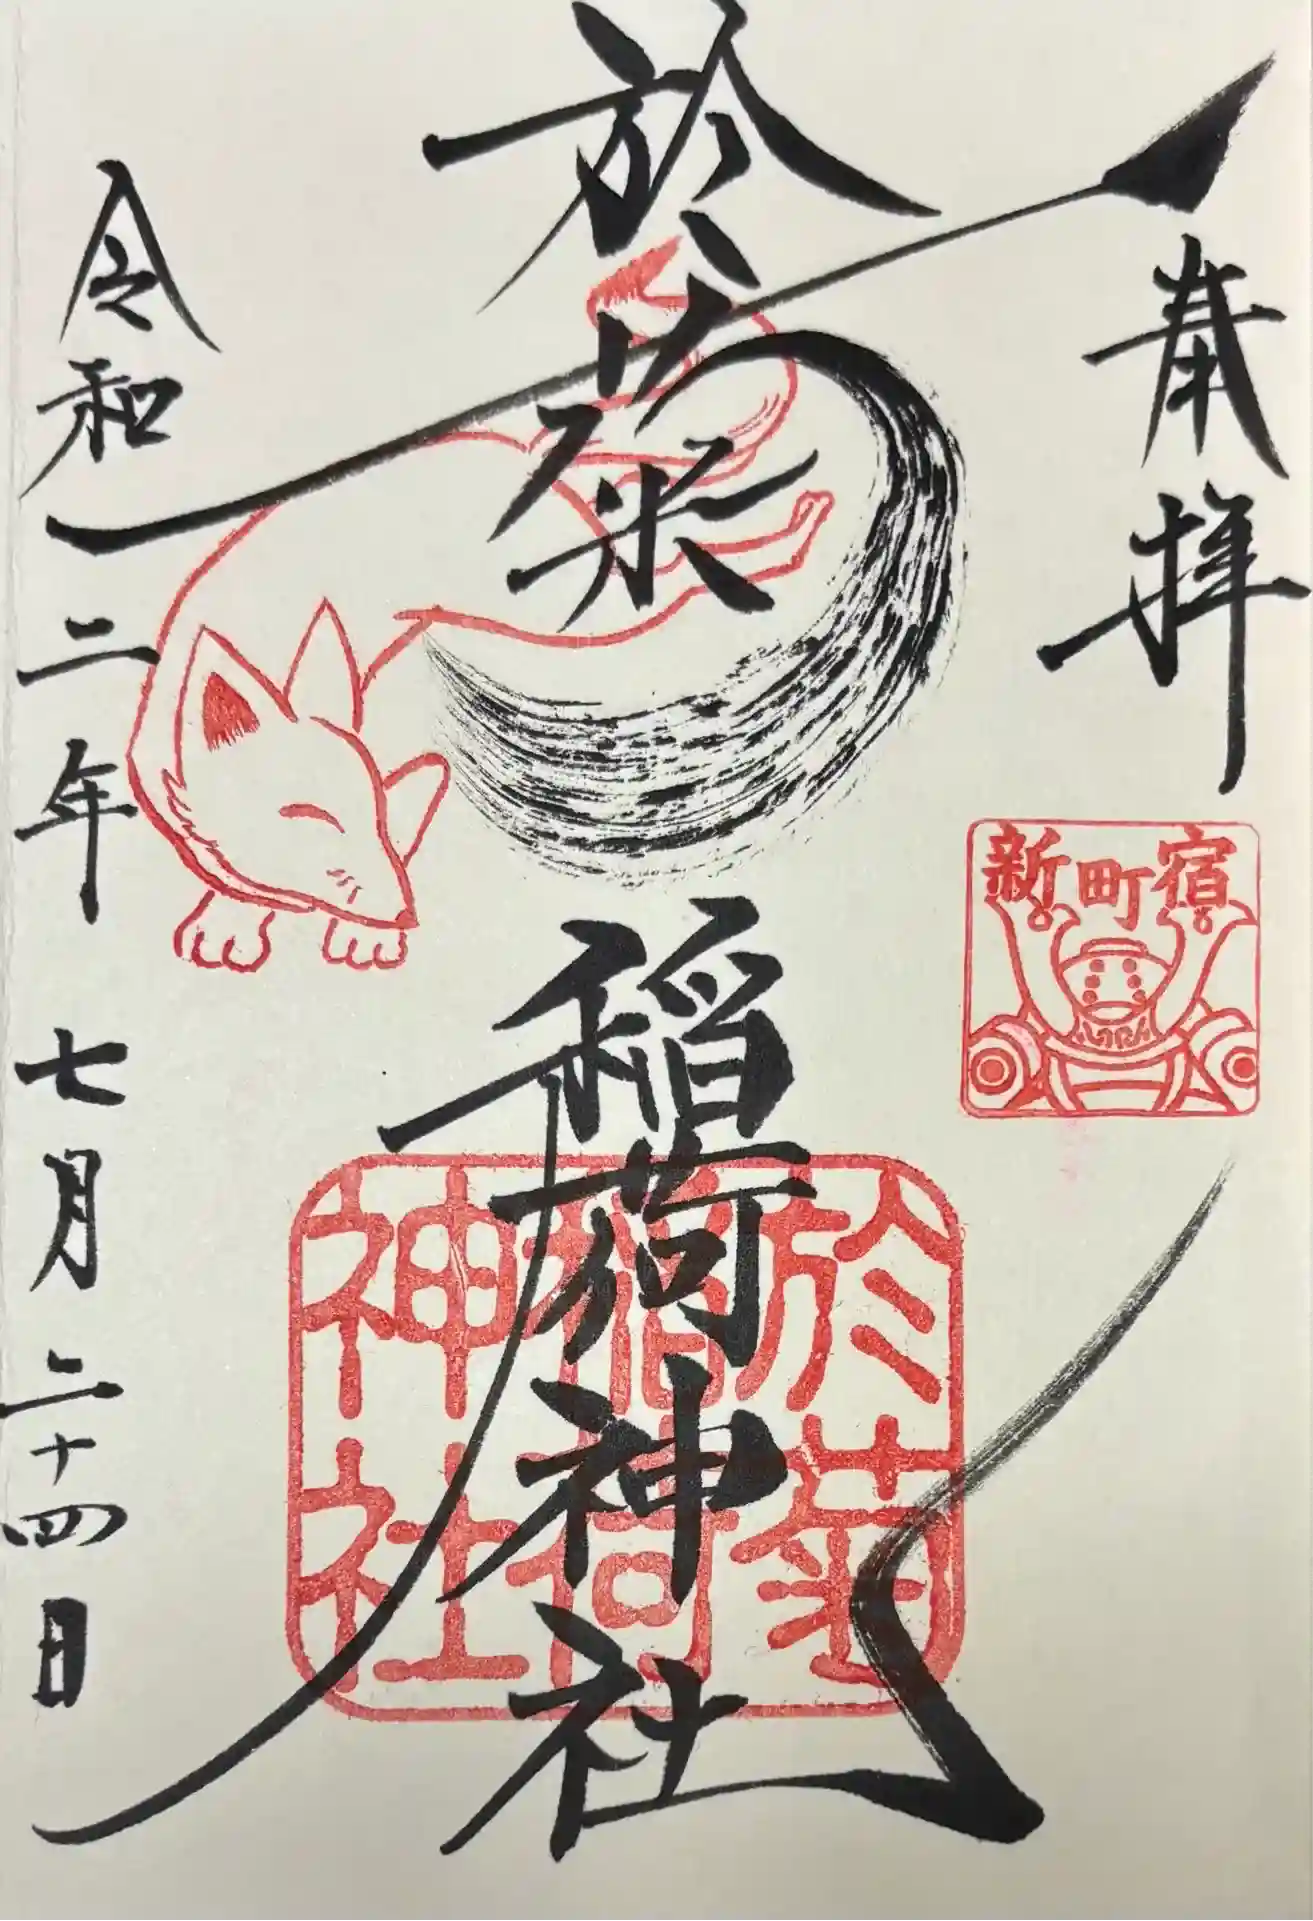 奉拝
新町宿
於菊稲荷神社
於菊
稲荷
神社
令和二年七月二十四日